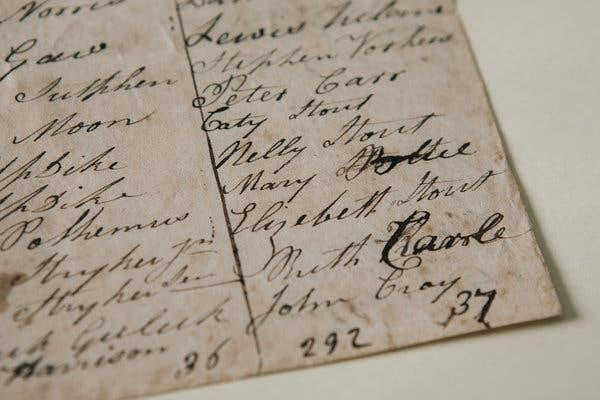 Norris
Gaw
Sutphen
Moon
UpDike
UpDike
Polhemus
Stryker jun
Stryker Sen
Gulick
Harrison
36
Lewis
Stephen Vorhees
Peter Carr
Caty Stout
Nelly Stout
Mary
Elizebeth Stout
Ruth Carrle
John Croy
37
292